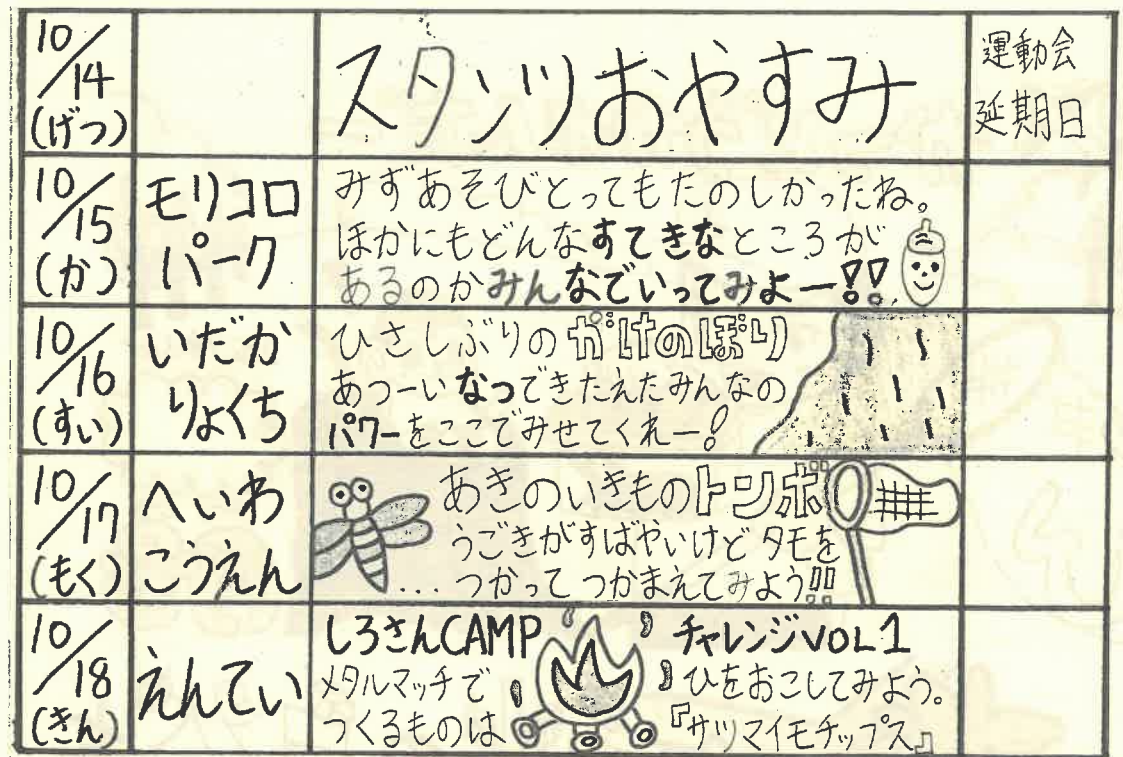 10/14
(げつ)
スタンツおやすみ
運動会
延期日
10/15
(か)
モリコロ
パーク
みずあそびとってもたのしかったね。
ほかにもどんなすてきなところが
あるのかみんなでいってみよー!!
10/16
(すい)
いだか
りょくち
ひさしぶりのがけのぼり
あつーいなつできたえたみんなの
パワーをここでみせてくれー!
10/17
(もく)
へいわ
こうえん
あきのいきものトンボ
うごきがすばやいけどタモを
...つかってつかまえてみよう!!
10/18
(きん)
えんてい
しろさんCAMP チャレンジVOL1
メタルマッチで ひをおこしてみよう。
つくるものは 『サツマイモチップス』